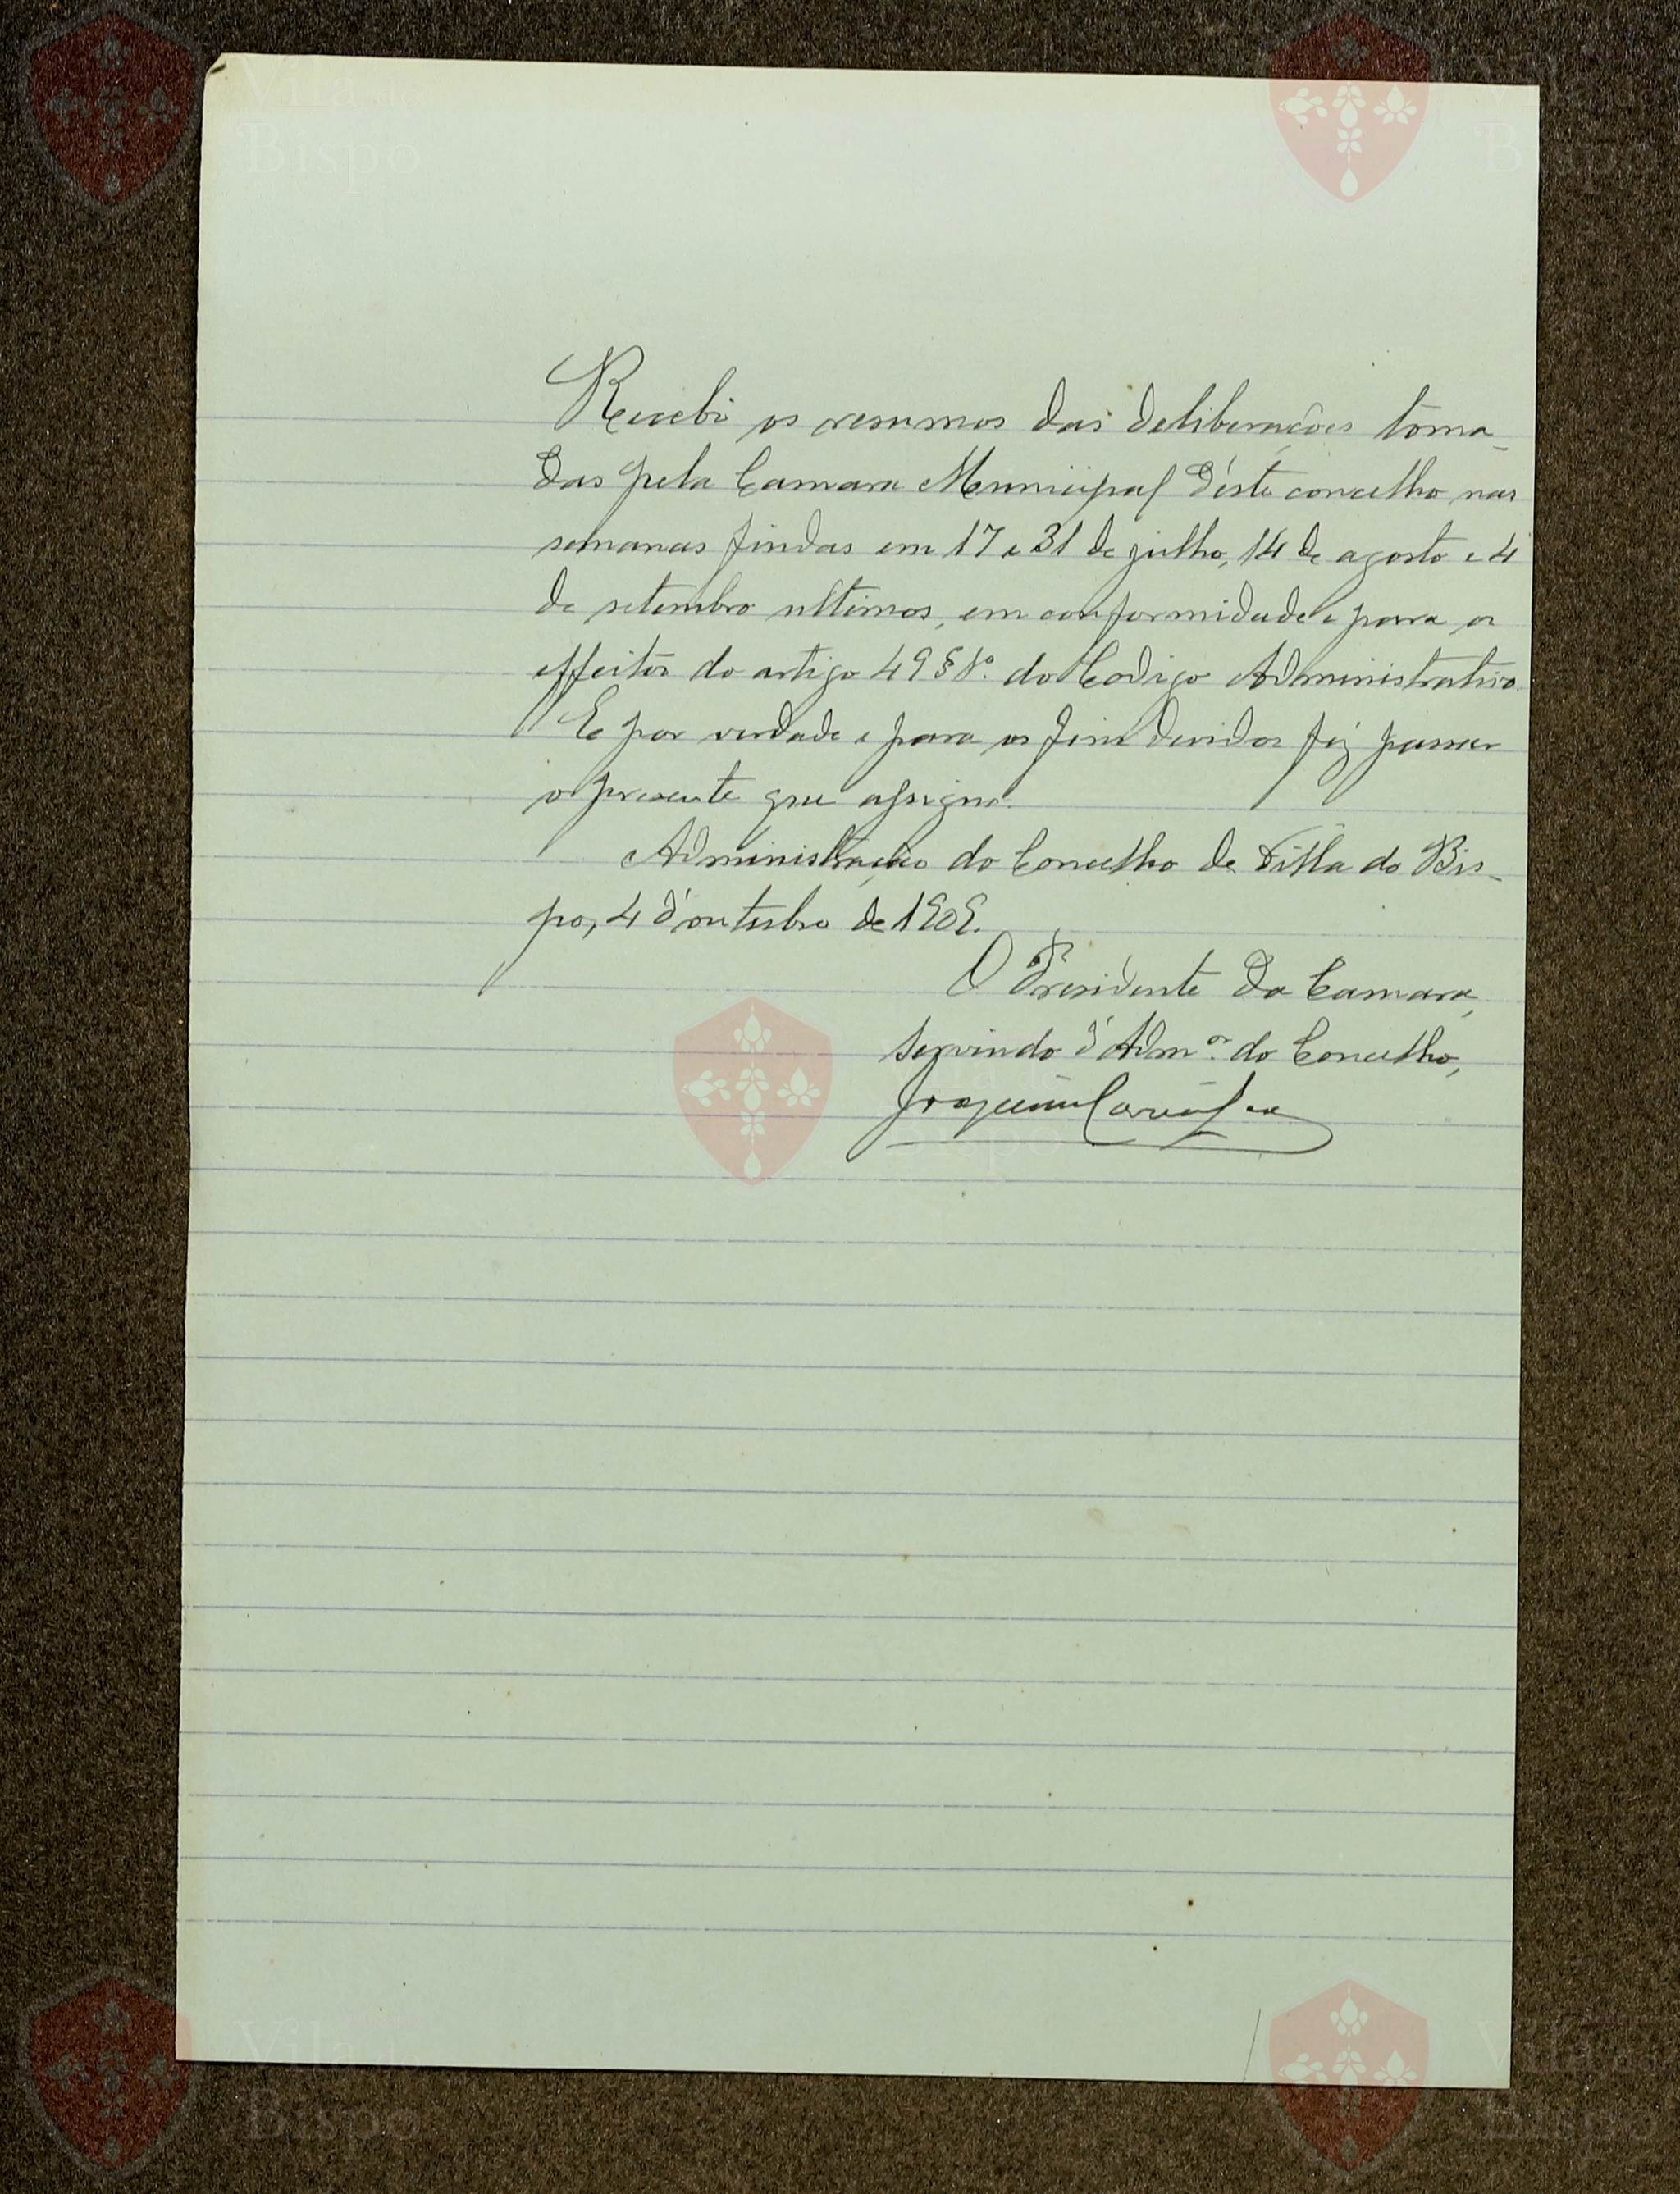 Recebi os resumos das deliberações toma-
das pela Camara Municipal d'éste concelho nas
semanas findas em 17 e 31 de julho, 14 de agosto e 4
de setembro ultimos, em conformidade e para os
effeitos do artigo 49 § 1º. do Codigo Administrativo.
E por verdade e para os fins devidos fiz passar
o presente que assigno.
Administração do Concelho de Villa do Bis-
po, 4 d'outubro de 1909.
O Presidente da Camara,
servindo d'Admor. do Concelho,
Joaquim
Vila do
Bispo